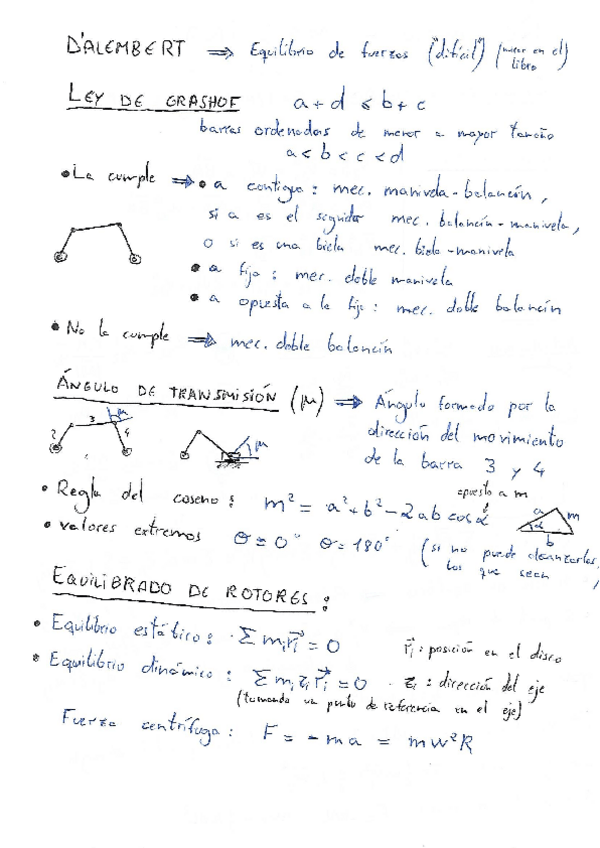 D'ALEMBERT ⇒ Equilibrio de fuerzas ("difícil") (mirar en el libro)
LEY DE GRASHOF a + d ≤ b + c
barras ordenadas de menor a mayor tamaño
a < b < c < d
• La cumple ⇒ • a contigua: mec. manivela-balancín,
si a es el seguidor mec. balancín-manivela,
o si es una biela mec. biela-manivela
• a fija: mec. doble manivela
• a opuesta a la fija: mec. doble balancín
• No la cumple ⇒ mec. doble balancín
ÁNGULO DE TRANSMISIÓN (μ) ⇒ Ángulo formado por la
dirección del movimiento
de la barra 3 y 4
2 3 4 μ
μ
• Regla del coseno: m² = a² + b² - 2ab cos α
opuesto a m
a m α b
• valores extremos θ = 0° θ = 180° (si no puede alcanzarlos,
los que sean
EQUILIBRADO DE ROTORES:
• Equilibrio estático: Σ mᵢr⃗ᵢ = 0 r⃗ᵢ: posición en el disco
• Equilibrio dinámico: Σ mᵢzᵢr⃗ᵢ = 0 zᵢ: dirección del eje
(tomando un punto de referencia en el eje)
Fuerza centrífuga: F = -ma = mω²R